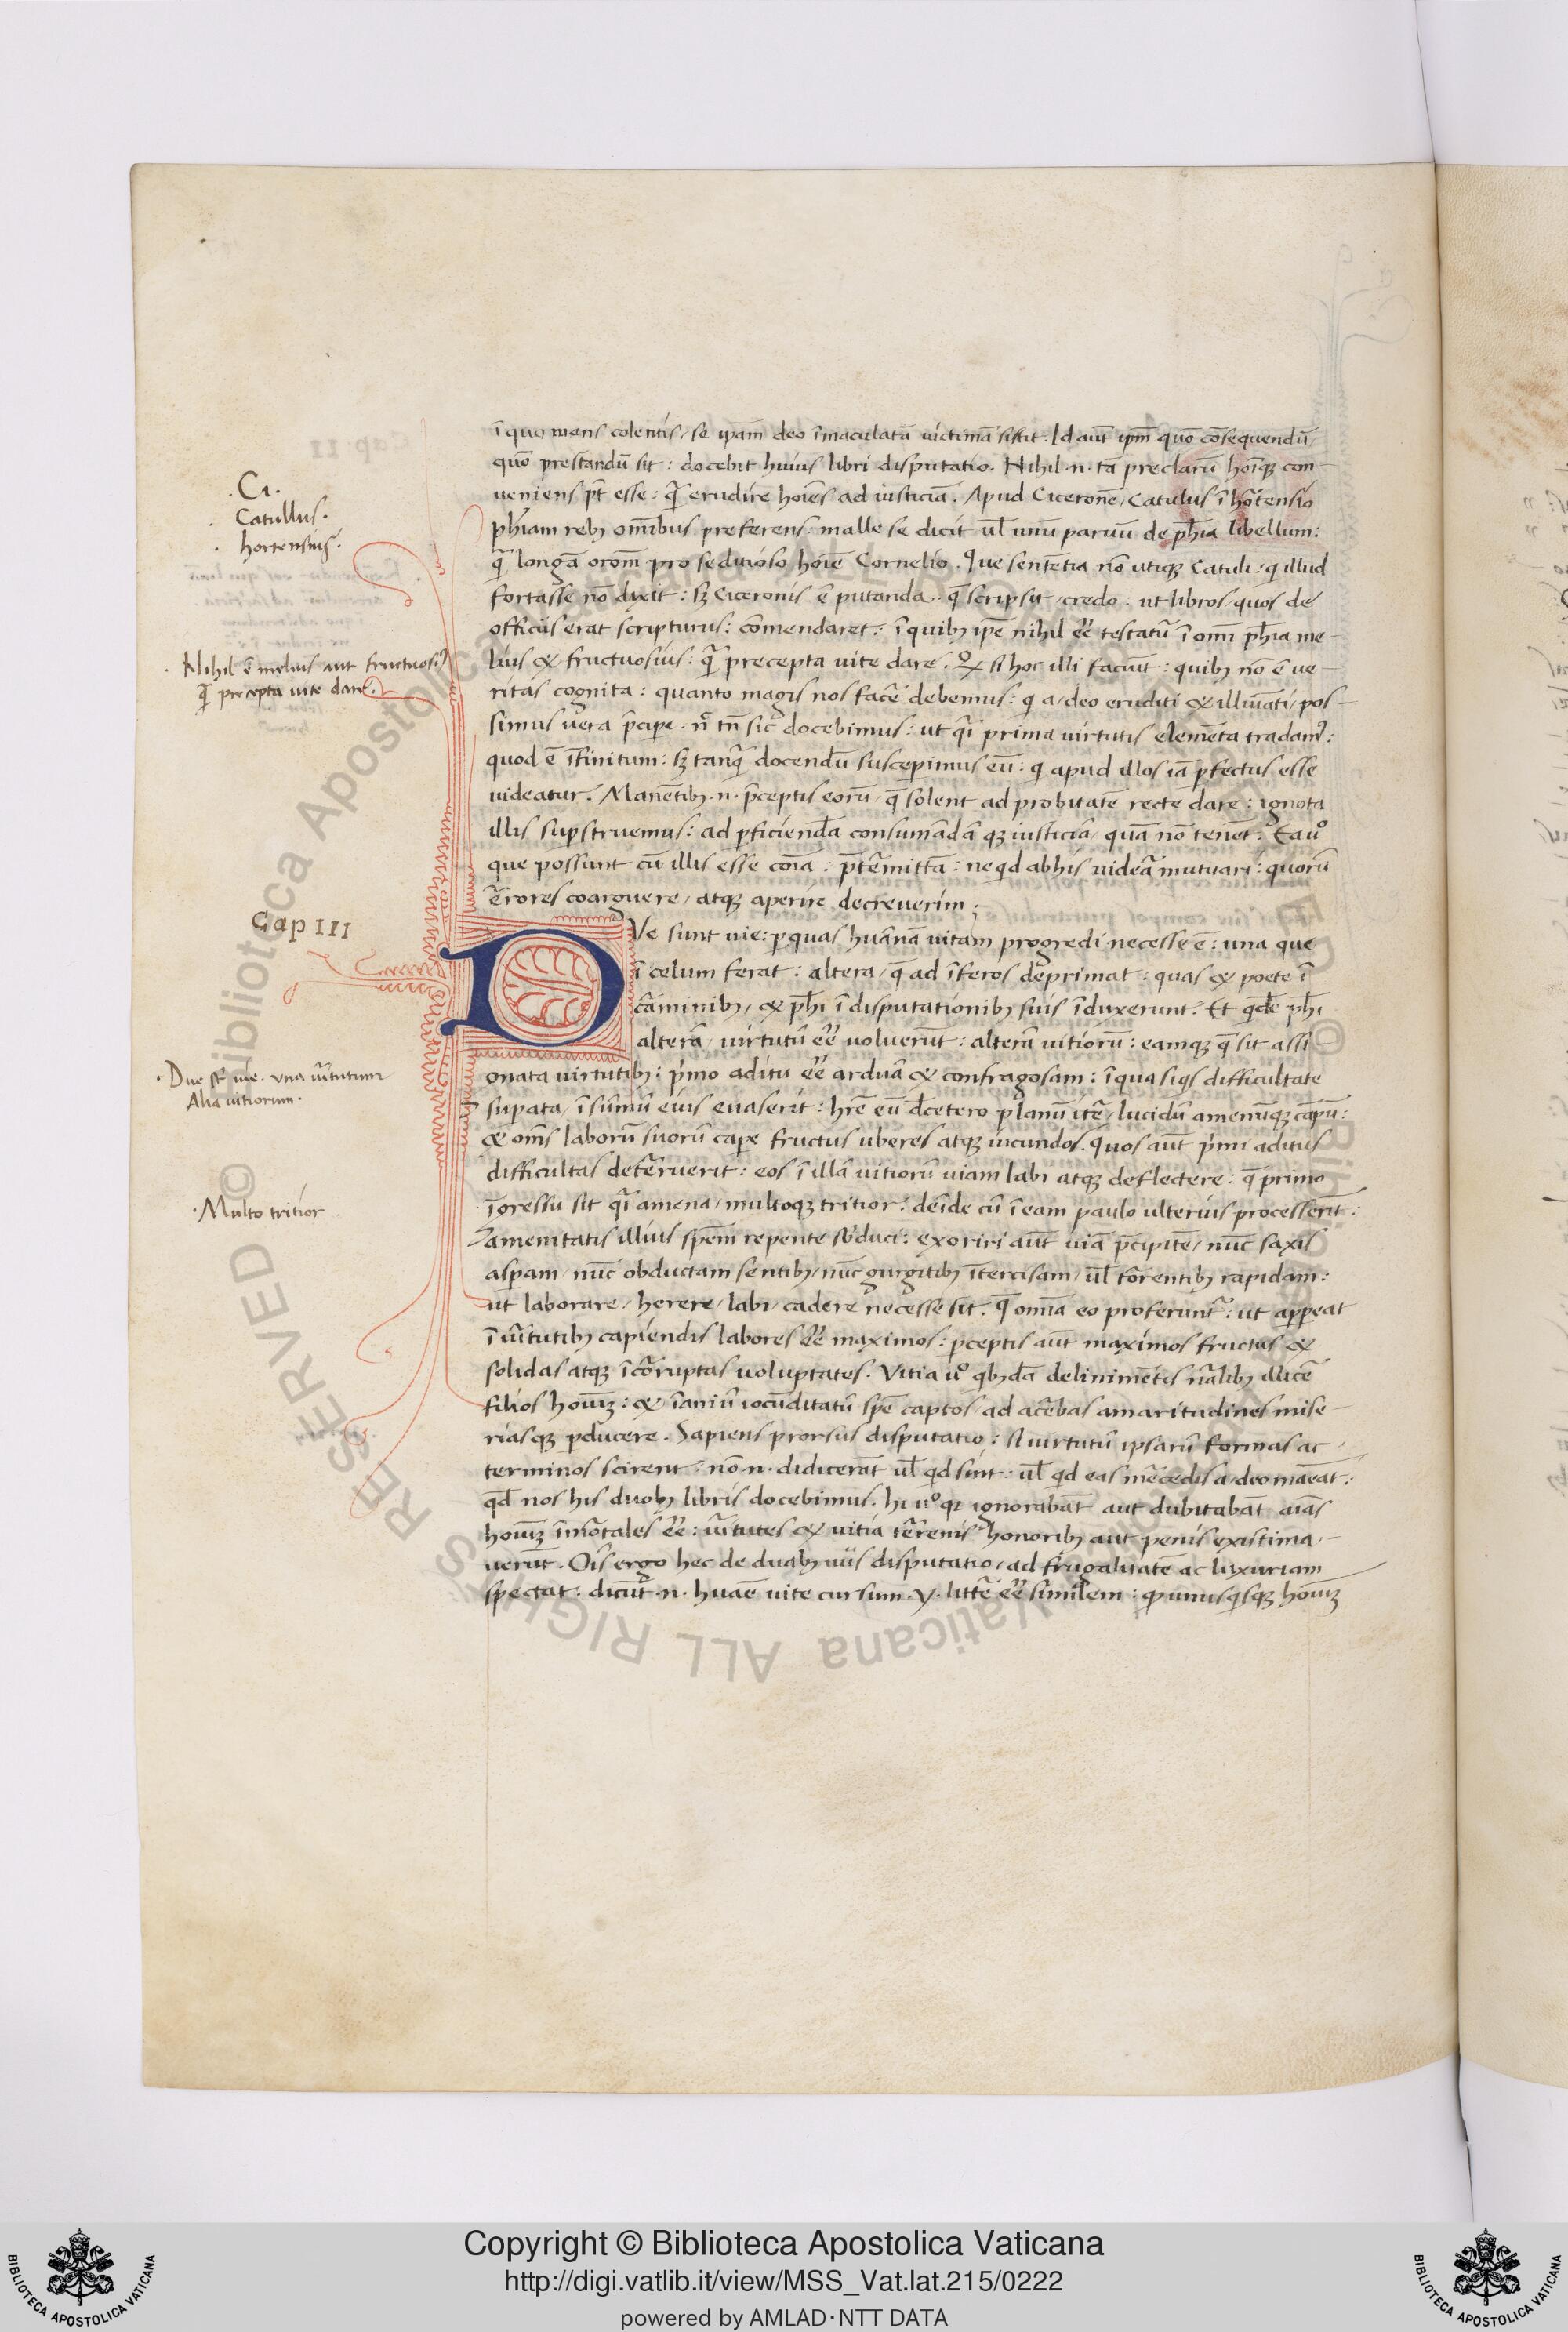 .Ci.
Catullus.
hortensius.
Nihil ē melius aut fructuosiꝰ
qͣ precepta vite dare.
Cap III
.Due st̄ vie. vna vͥtutum
Alia vitiorum.
.Multo tritior
ī quo mens colentis/ se ip̄am deo īmaculatā victimā sistit. Id aūt ip̄m̄ quō cōsequendū/
quō prestandū sit: docebit huius libri disputatio. Nihil .n. tā preclarū hoīqꝫ con-
veniens p̄t esse: qͣ erudire hoīes ad iusticiā. Apud Ciceronē/ Catulus ī hortensio
ph̄iam rebꝫ om̄ibus preferens/ malle se dicit ul̄ unū parvū de ph̄ia libellum:
qͣ longā orōm̄ pro seditioso hoīe Cornelio. Que sentētia nō utiqꝫ Catuli: q illud
fortasse nō dixit: sꝫ Ciceronis ē putanda. q̄ scripsit/ credo: ut libros/ quos de
officiis erat scripturus: cōmendaret: ī quibꝫ ip̄e nihil eē testatͬ ī om̄i ph̄ia me-
lius & fructuosius: qͣ precepta vite dare. Qꝫ si hoc illi faciūt: quibꝫ nō ē ve-
ritas cognita: quanto magis nos facē debemus: q a/ deo eruditi & illuīati/ pos-
simus vera p̄cipe. nͦ tn̄ sic docebimus: ut qͣi prima virtutis elemēta tradamꝰ:
quod ē īfinitum: sꝫ tanqͣ docendū susceperimus eū: q apud illos iā perfectus esse
videatur. Manētibꝫ .n. p̄ceptis eorū/ q̄ solent ad probitatē recte dare: ignota
illis suꝑstruemus: ad ꝑficiendā consumādāqꝫ iusticiā/ quā nō tenēt. Ea uͦ
que possunt cū illis esse cōia: p̄tͥmittā: ne qd ab his videā mutuari: quorū
errores coarguere/ atqꝫ aperire decreverim;
DVe sunt vie: ꝑ quas huānā vitam progredi necesse ē: una que
ī celum ferat: altera/ q̄ ad īferos deprimat: quas & poete ī
cāminibꝫ/ & ph̄i ī disputationibꝫ suis īduxerunt. Et qͥdē ph̄i
alterā/ virtutū eē voluerūt: alterā vitiorū: eamqꝫ q̄ sit assi-
gnata virtutibꝫ: pͥmo aditu eē arduā & confragosam: ī qua siqs difficultate
suꝑata/ ī sūmū eius evaserit: hr̄e eū dcetero planū iter/ lucidū amenūqꝫ cāpū:
& om̄s laborū suorū caꝑe fructus uberes atqꝫ iucundos. Quos aūt pͥmi aditus
difficultas deterruerit: eos ī illā vitiorū viam labi atqꝫ deflectere: q̄ primo
īgressu sit qͣi amena/ multoqꝫ tritior: deīde cū ī eam paulo ulterius processerīt:
amenitatis illius spēm repente sbduci: exoriri aūt viā p̄cipitē/ nūc saxis
aspam/ nūc obductam sentibꝫ/ nūc gurgitibꝫ ītercisam/ ul̄ torrentibꝫ rapidam:
ut laborare/ herere/ labi/ cadere necesse sit. q̄ omīa eo proferuntͬ: ut appeat
ī vͥtutibꝫ capiendis labores eē maximos: ꝑceptis aūt maximos fructus &
solidas atqꝫ īcorruptas voluptates. Vitia uͦ qbꝫdā delinimētis nālibꝫ illicē
filios hoīuꝫ: & īaniū iocūditatū spē captos/ ad acerbas amaritudines mise-
riasqꝫ ꝑducere. Sapiens prorsus disputatio: si virtutū ipsarū formas ac
terminos scirent. nō .n. didicerāt ul̄ qd sint: ul̄ qd eas mercedis a/ deo maneat:
qd̄ nos his duobꝫ libris docebimus. hi uͦ qꝛ ignorabāt aut dubitabāt aīas
hoīuꝫ īmortales eē: vͥtutes & vitia terrenis honoribꝫ aut penis existima-
verūt. Oīs ergo hec de duabꝫ viis disputatio/ ad frugalitatē ac luxuriam
spectat. dicūt .n. huāe vite cursum .y. litterē eē similem: qꝫ unusqsqꝫ hoīuꝫ
Copyright © Biblioteca Apostolica Vaticana
http://digi.vatlib.it/view/MSS_Vat.lat.215/0222
powered by AMLAD·NTT DATA
BIBLIOTECA APOSTOLICA VATICANA
BIBLIOTECA APOSTOLICA VATICANA